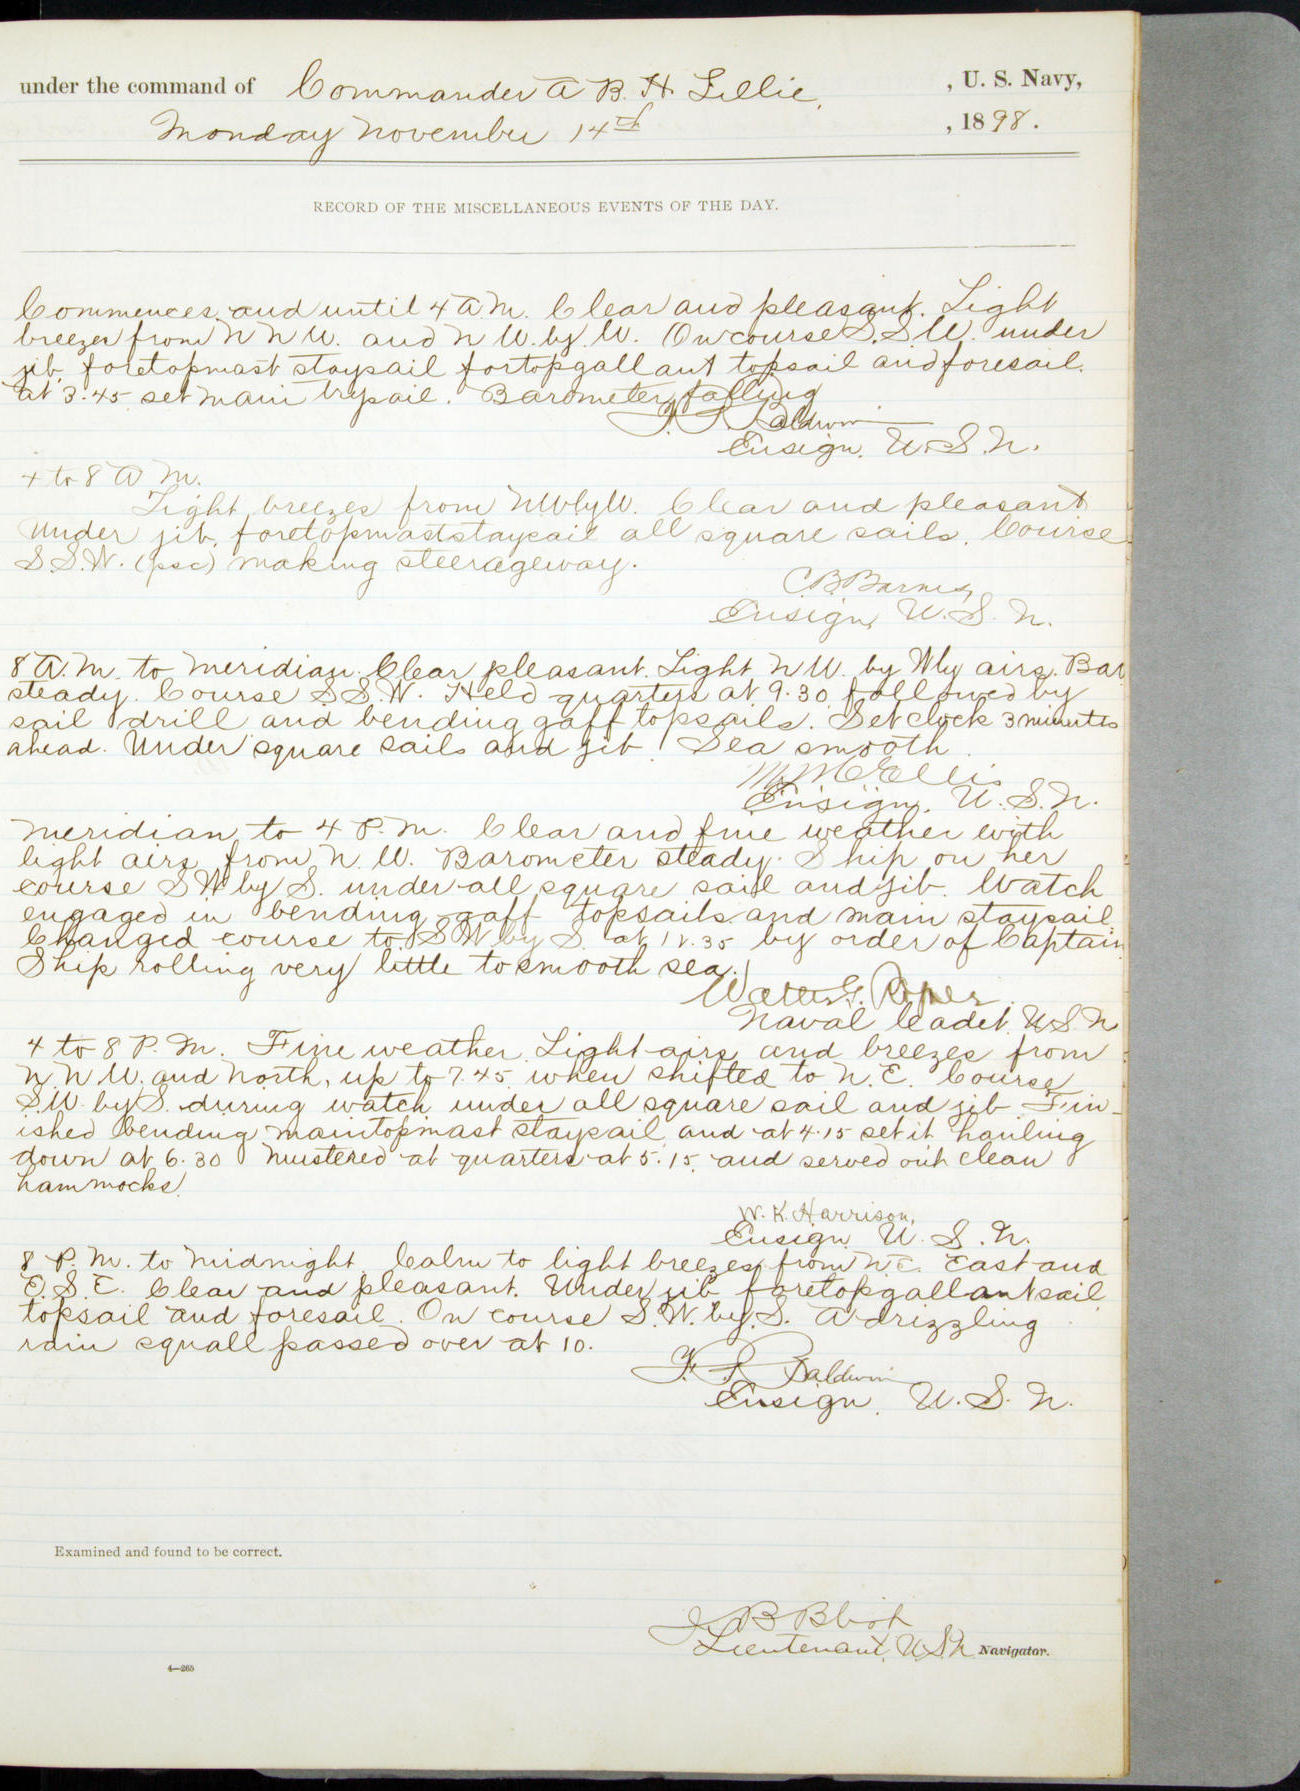 under the command of Commander A B. H. Lillie, , U. S. Navy,
Monday November 14th , 1898.
RECORD OF THE MISCELLANEOUS EVENTS OF THE DAY.
Commences and until 4 A M. Clear and pleasant. Light
breezes from N N W. and N W. by W. On course S.S.W. under
jib, foretopmast staysail fortopgallant topsail and foresail.
At 3.45 set main trysail. Barometer falling
Baldwin
Ensign, U.S.N.
4 to 8 A M.
Light breezes from NWbyW. Clear and pleasant
Under jib, foretopmaststaysail all square sails. Course
S.S.W. (psc) making steerageway.
C.B. Barnes,
Ensign, U.S.N.
8 A.M. to Meridian. Clear pleasant. Light N W. by Wly airs. Bar
steady. Course S.S.W. Held quarters at 9.30 followed by
sail drill and bending gaff topsails. Set clock 3 minutes
ahead. Under square sails and jib. Sea smooth.
M McEllis
Ensign, U.S.N.
Meridian to 4 P.M. Clear and fine weather with
light airs from N.W. Barometer steady. Ship on her
course SW by S. under all square sail and jib. Watch
engaged in bending gaff topsails and main staysail.
Changed course to SW by S. at 12.35 by order of Captain
Ship rolling very little to smooth sea.
Walter G. Roper
Naval Cadet, U.S.N
4 to 8 P.M. Fine weather. Light airs and breezes from
N.N.W. and North, up to 7.45 when shifted to N.E. Course
S.W. by S. during watch under all square sail and jib. Fin-
ished bending maintopmast staysail, and at 4.15 set it hauling
down at 6.30 Mustered at quarters at 5.15, and served out clean
hammocks.
W. K. Harrison,
Ensign U.S.N.
8 P.M. to Midnight. Calm to light breezes from N.E. East and
E.S.E. Clear and pleasant. Under jib foretopgallantsail
topsail and foresail. On course S.W. by S. A drizzling
rain squall passed over at 10.
Baldwin
Ensign, U.S.N.
Examined and found to be correct.
J B Blish
Lieutenant, U.S.N. Navigator.
4—265